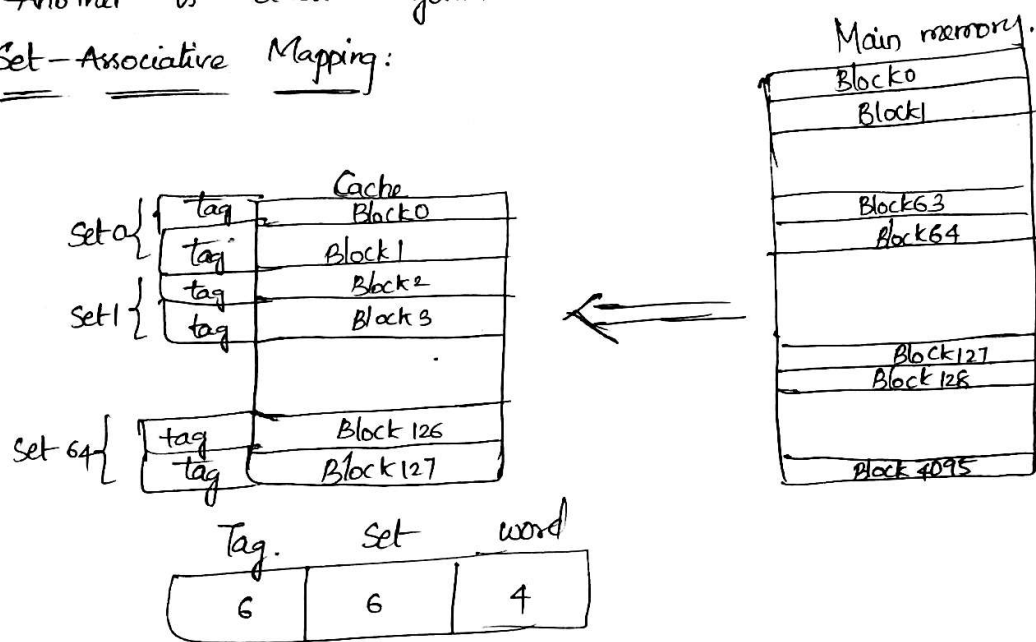 Set-Associative Mapping:
Main memory.
Block0
Block1
Block63
Block64
Block127
Block128
Block 4095
Cache
Set 0
tag Block0
tag Block1
Set 1
tag Block2
tag Block3
Set 64
tag Block 126
tag Block127
Tag. Set word
6 6 4